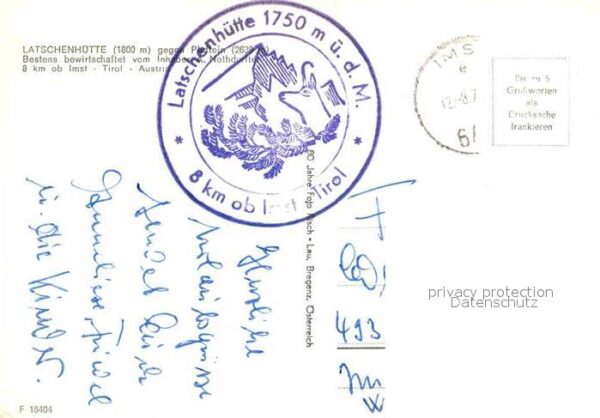 LATSCHENHÜTTE (1800 m) gegen Pleisein (2639
Bestens bewirtschaftet vom Inhaber A. Nothdurfter
8 km ob Imst - Tirol - Austria
* Latschenhütte 1750 m ü. d. M. *
8 km ob Imst - Tirol
IMS
12.-8.7
6
Bis zu 5
Grußworten
als
Drucksache
frankieren
60 Jahre Foto Risch - Lau, Bregenz, Österreich
Herzliche
Urlaubsgrüsse
sendet Euch
Anneliese, Friedel
u. die Kinder.
493
privacy protection
Datenschutz
F 18404